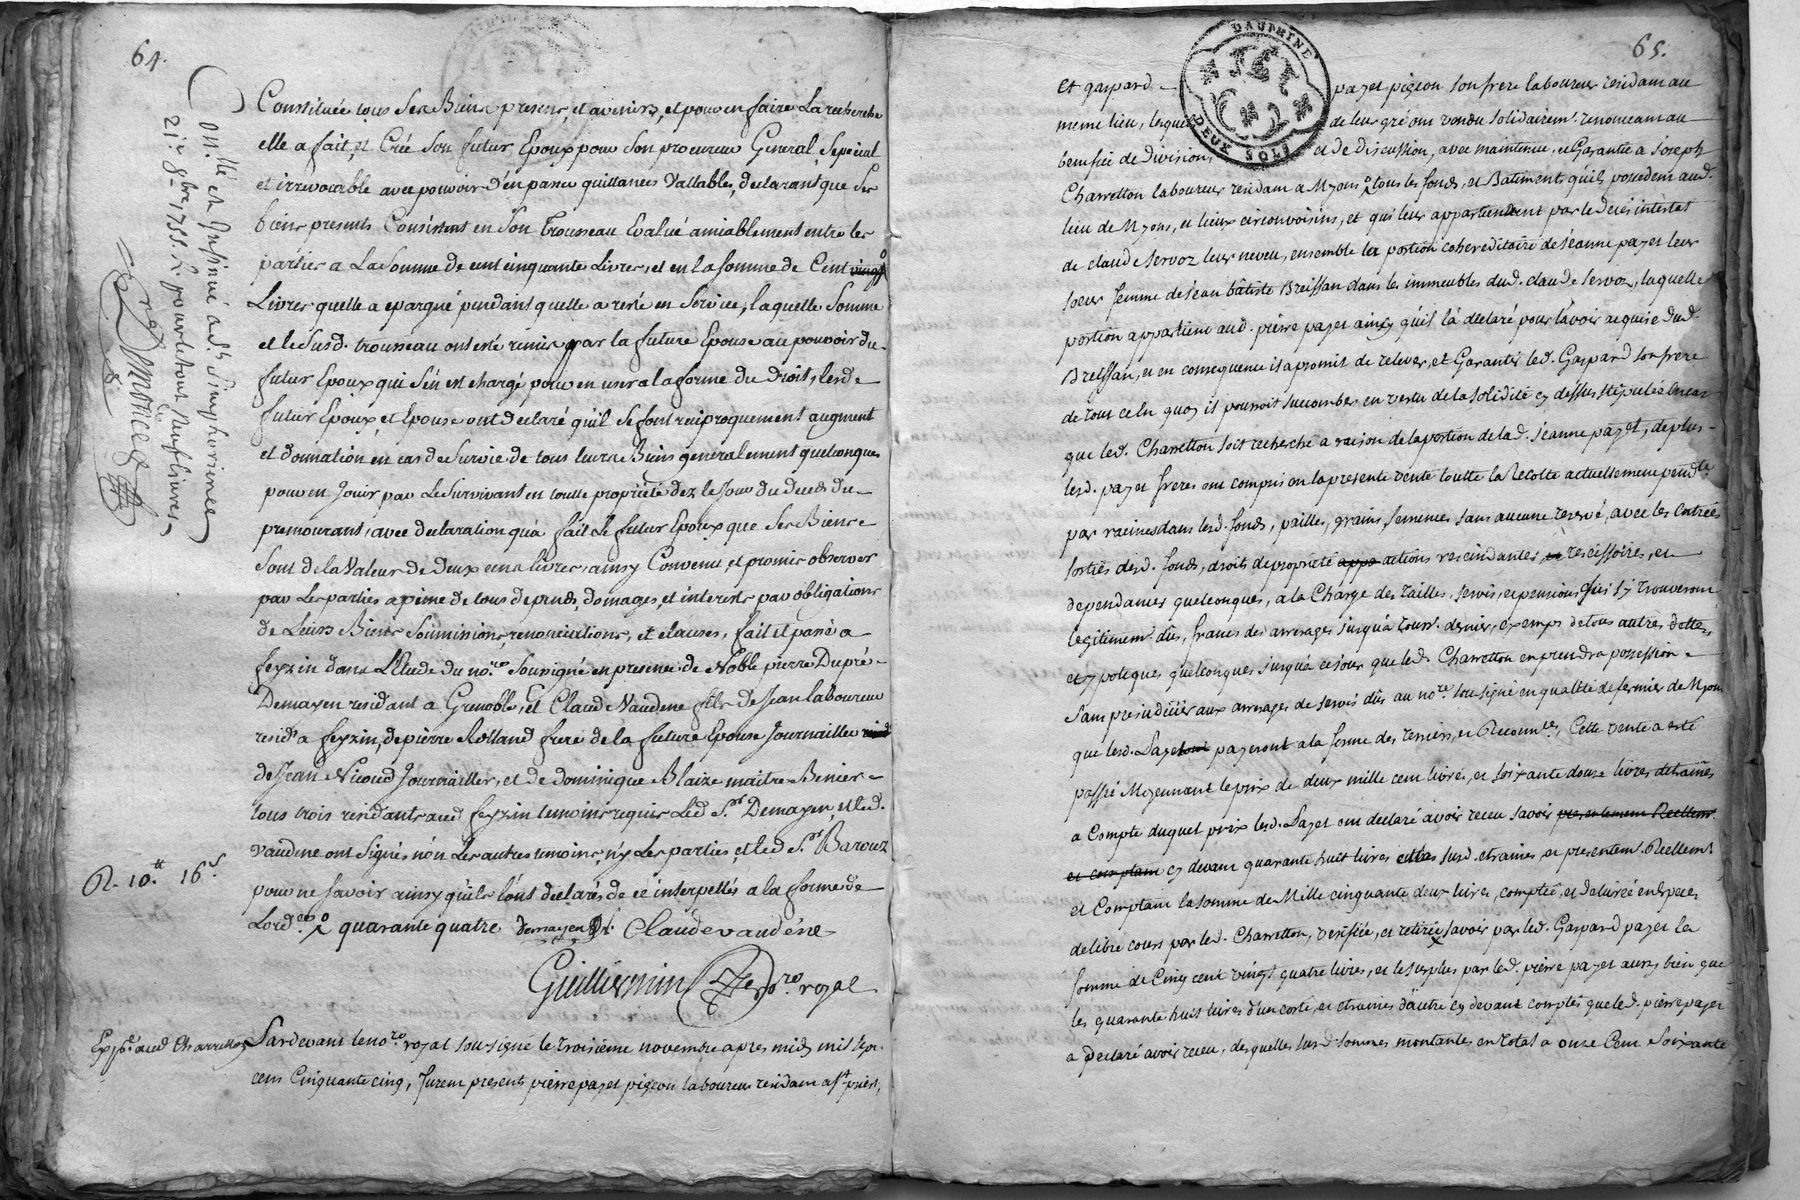 64.
Constituée tous ses Biens presens, et avenirs, et pour en faire La recherche
elle a fait, et Créé son futur Epoux pour son procureur General, Sepécial
et irrevocable avec pouvoir d'en passer quittances Vallables, declarant que ses
biens presents Consistent en son Trousseau Evalué amiablement entre les
parties a La somme de cent cinquante Livres, et en la somme de Cent vingt
Livres quelle a epargné pendant quelle a resté en service, laquelle somme
et le susd. trousseau ont esté remis par la future Epouse au pouvoir du
futur Epoux qui s'en est chargé pour en user a la forme du Droit, lesd.
futur Epoux, et Epouse ont declaré qu'il se font reciproquement augment
et donnation en cas de survie de tous leurs Biens generalement quelconques
pour en Jouir par Le survivant en toutte proprieté dez le Jour du deces du
premourant, avec declaration qu'a fait Le futur Epoux que ses Biens
sont de la Valeur de Deux cent livres, ainsy Convenu, et promis observer
par Les parties a peine de tous depends, domages, et interests par obligations
de Leurs Biens, soumissions, renonciations, et clauses, fait et passé a
feyzin dans L'Etude du no.re soussigné en presence de Noble pierre Dupré
Demayen residant a Grenoble, et Claude Vaudene fils de Jean laboureur
resid.t a feyzin, de pierre Rolland frere de la future Epouse Journaillier
de Jean Nicoud Journaillier, et de dominique Blaize maitre
tous trois residants aud. feyzin temoins requis Led. S.r Demayen, et led.
vaudene ont signés non Les autres temoins, n'y Les parties, et led. S.r Barouz
pour ne savoir ainsy quils l'ont declarés de ce interpellés a la forme de
Lord.ce quarante quatre demayen Claude vaudéne
Guilliermin No.re royal
on.llé et Insinué a S.t Simphorien
21.e 9bre 1755. R. pour le tout neuf livres
R. 10.tt 16.s
Exp.é aud. Charretton
Pardevant le no.re royal sousigné le troisieme novembre apres midy mil sept
cens Cinquante cinq, furent presents pierre payet pigeon laboureur residam a S.t priest,
65.
DAUPHINÉ
DEUX SOLS
et gaspard payet pigeon son frere laboureur residam au
meme lieu, lesquels de leur gré ont vendu solidairem.t renonceam au
benefice de division, et de discussion, avec maintenue, et Garantie a Joseph
Charretton laboureur residam a Myons tous les fonds, et Batiments qu'ils possedent aud.
lieu de Myons, et lieux circonvoisins, et qui leur appartiennent par le deces intestat
de claude servoz leur neveu, ensemble la portion cohereditaire de jeanne payet leur
soeur femme de jean bâtiste Breissan dans les immeubles dud. claude servoz, laquelle
portion appartient aud. pierre payet ainsy quil l'a declaré pour l'avoir acquise dud.
Breissan, et en consequence il a promit de relever, et Garantir led. Gaspard son frere
de tout ce en quoy il pourroit succomber en vertu de la solidité cy dessus stipulée en cas
que led. Charretton soit recherché a raison de la portion de lad. jeanne payet, de plus
lesd. payet freres ont compris en la presente vente toutte la Recolte actuellement pend.te
par racines dans lesd. fonds, pailles, grains, semences sans aucune reservé, avec les entrées
sorties desd. fonds, droits de proprieté appa actions rescindantes, et rescissoires, et
dependances quelconques, a la Charge des tailles, servis, et pensions qui s'y trouveront
legitimem.t dûs, francs des arrerages jusqu'a tous.ts dernier, exemps de tous autres dettes,
et ypoteques quelconques jusqu'a ce jour que led. Charretton en prendra possession
sans prejudicier aux arrerages de servis dûs au no.re sousigné en qualité de fermier de Myons
que lesd. Payet payeront a la forme des terriers, et Reconn.ces, Cette vente a esté
passée Moyennant le prix de deux mille cent livres, et soixante douze livres detraines
a Compte duquel prix lesd. Payet ont declaré avoir receu savoir presentement Reellem.t
et comptant cy devant quarante huit livres et les susd. etraines, et presentem.t Reellem.t
et Comptant la somme de Mille cinquante deux livres comptée, et delivrée en especes
de libre cours par led. Charretton, verifiée, et retirée savoir par led. Gaspard payet la
somme de Cinq cent vingt quatre livres, et le surplus par led. pierre payet aussy bien que
les quarante huit livres d'un costé, et etraines d'autre cy devant comptés que led. pierre payet
a declaré avoir receu, desquelles susd. sommes montantes en total a onze Cent Soixante